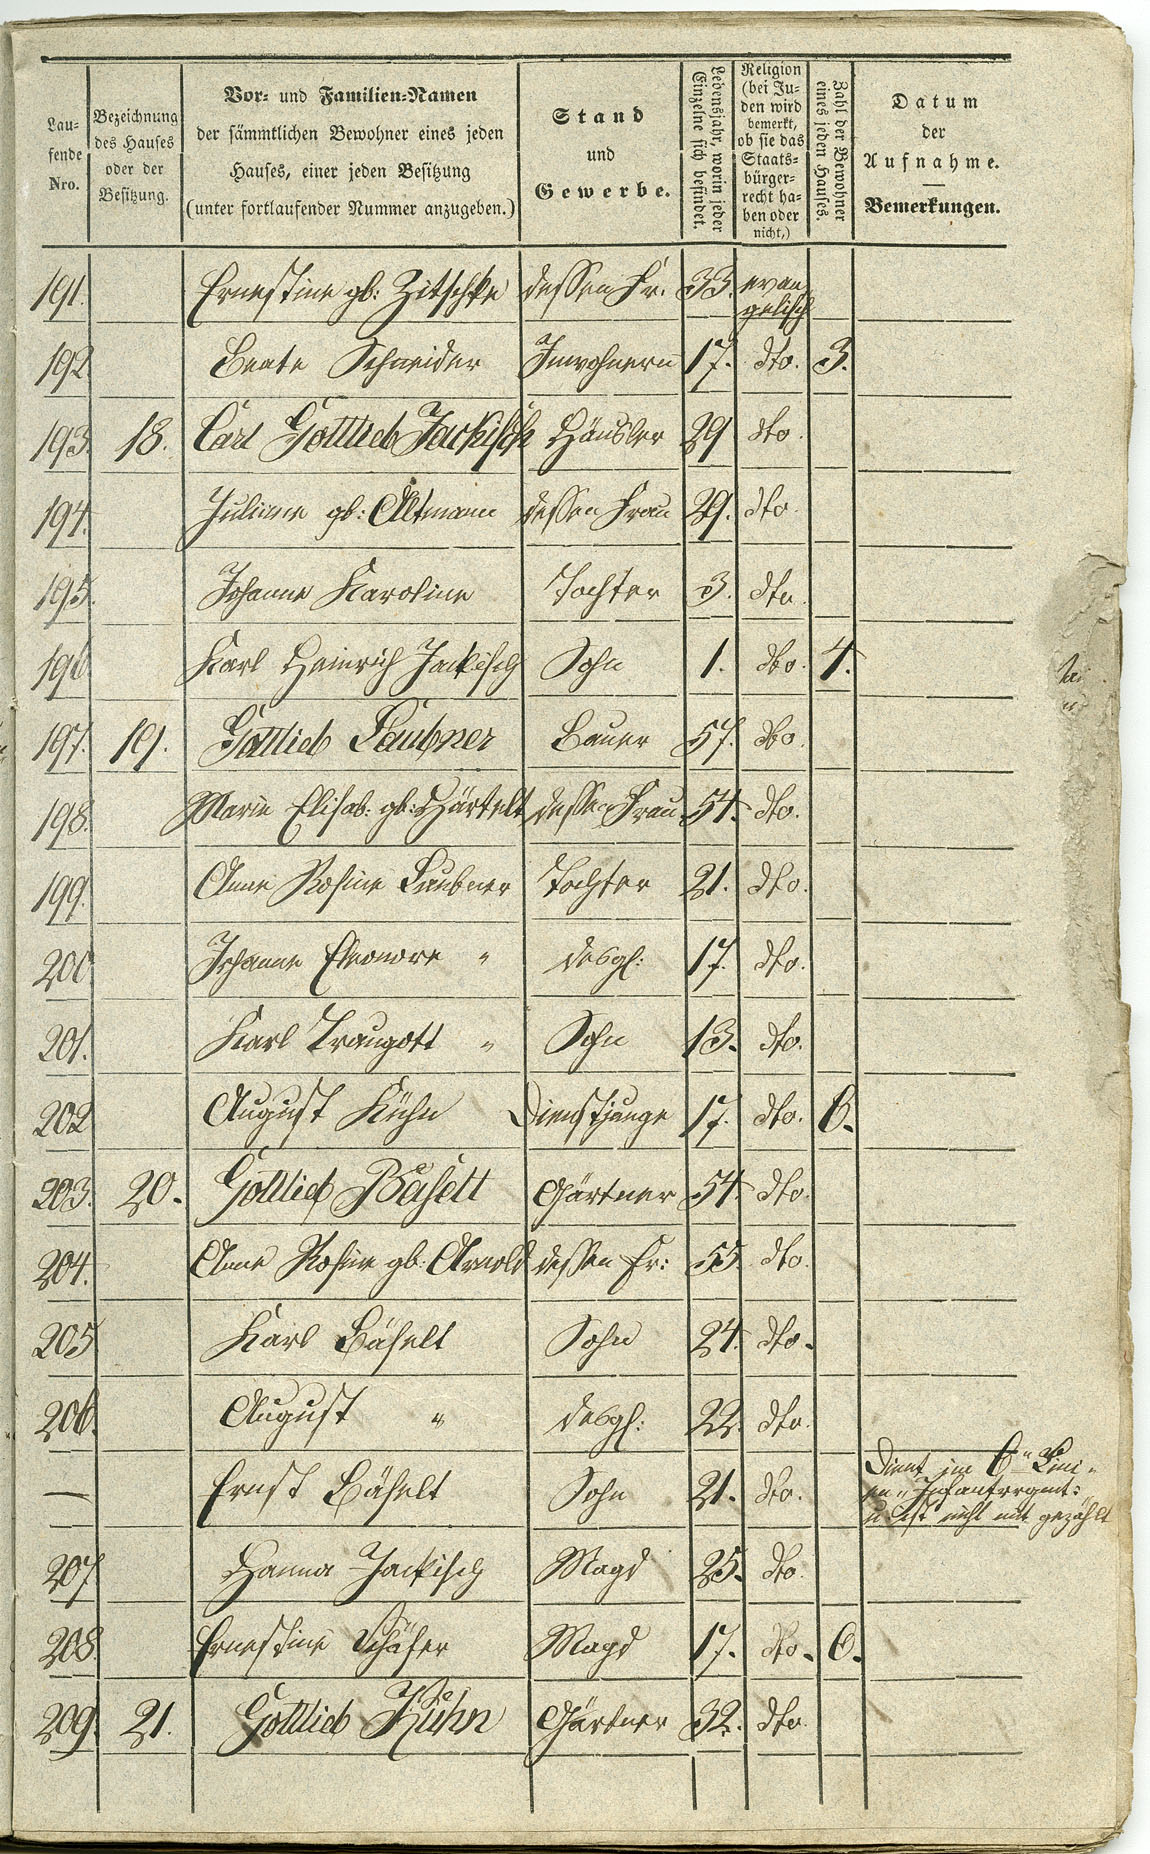 Lau-
fende
Nro.
Bezeichnung
des Hauses
oder der
Besitzung.
Vor- und Familien-Namen
der sämmtlichen Bewohner eines jeden
Hauses, einer jeden Besitzung
(unter fortlaufender Nummer anzugeben.)
Stand
und
Gewerbe.
Lebensjahr, worin jeder
Einzelne sich befindet.
Religion
(bei Ju-
den wird
bemerkt,
ob sie das
Staats-
bürger-
recht ha-
ben oder
nicht,)
Zahl der Bewohner
eines jeden Hauses.
Datum
der
Aufnahme.
Bemerkungen.
191. Ernestine gb: Zitschke dessen Fr. 33. evan
gelisch
192. Beate Schneider Inwohnerin 17. dto. 3.
193. 18. Carl Gottlieb Jackisch Häusler 29 dto.
194. Juliane gb: Altmann dessen Frau 29. dto.
195. Johanne Karoline Tochter 3. dto.
196. Karl Heinrich Jackisch Sohn 1. dto. 4.
197. 19. Gottlieb Laubner Bauer 57. dto.
198. Marie Elisab: gb: Härtelt dessen Frau 54. dto.
199. Anne Rosine Laubner Tochter 21. dto.
200. Johanne Eleonore " desgl: 17. dto.
201. Karl Traugott " Sohn 13. dto.
202 August Kühn Dienstjunge 17. dto. 6.
203. 20. Gottlieb Bäselt Gärtner 54. dto.
204. Anne Rosine gb: Arnold dessen Fr: 55. dto.
205 Karl Bäselt Sohn 24. dto.
206. August " desgl: 22. dto.
— Ernst Bäselt Sohn 21. dto. Dient im 6n Lini-
en-Infantrgmt:
u ist nicht mit gezählt
207 Hanna Jackisch Magd 25. dto.
208. Ernestine Schäfer Magd 17. dto. 6.
209. 21. Gottlieb Kühn Gärtner 32. dto.